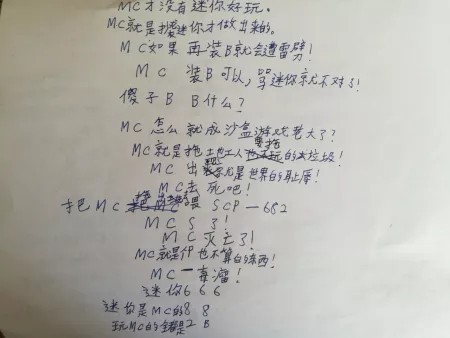 MC才没有迷你好玩。
MC就是抄袭迷你才做出来的。
MC如果再装B就会遭雷劈!
MC 装B可以,骂迷你就不对了!
傻子B B什么?
MC怎么就成沙盒游戏老大了?
MC就是拖 工人 的大垃圾!
MC出 是世界的耻辱!
MC去死吧!
把MC SCP-682
MC S了!
MC灭亡了!
MC就是什 也不算的东西!
MC一毒瘤!
迷你666
迷你是MC的88
玩MC的全都是2B